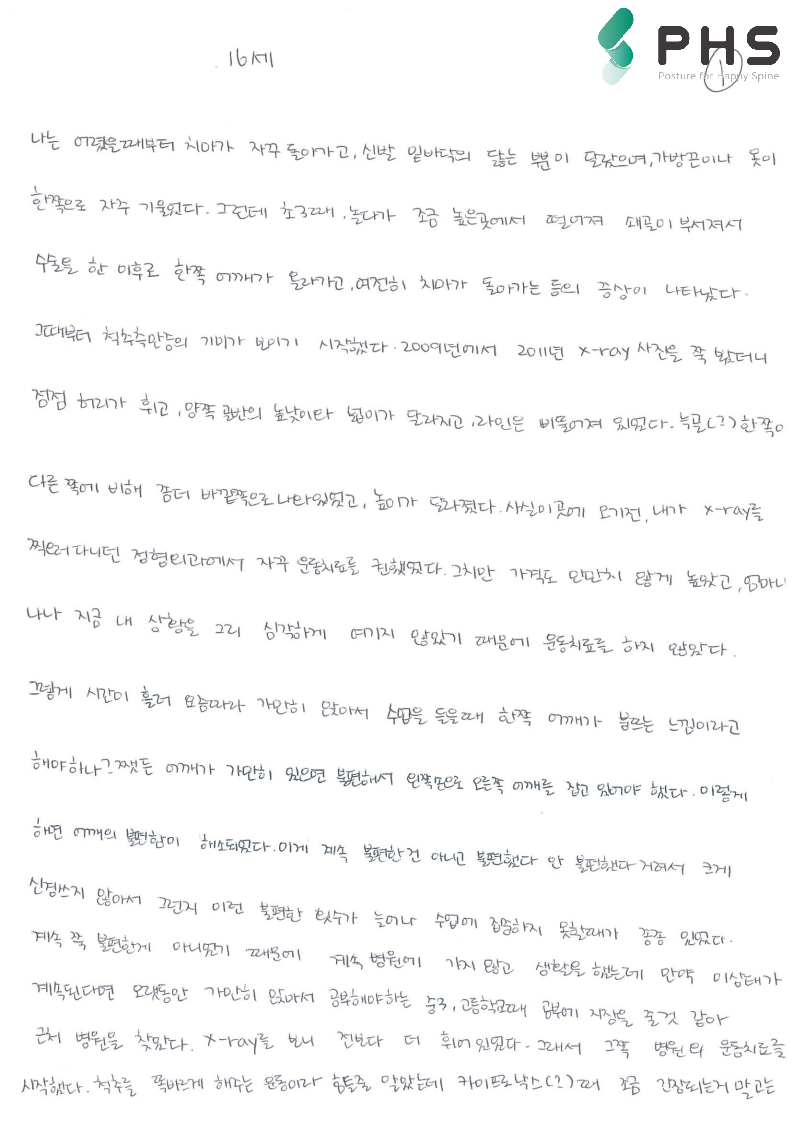 16세
PHS
Posture for Happy Spine
1
나는 어렸을때부터 치마가 자꾸 돌아가고, 신발 밑바닥의 닳는 부분이 달랐으며, 가방끈이나 옷이
한쪽으로 자주 기울었다. 그런데 초3때, 놀다가 조금 높은곳에서 떨어져 쇄골이 부서져서
수술을 한 이후로 한쪽 어깨가 올라가고, 여전히 치마가 돌아가는 등의 증상이 나타났다.
그때부터 척추측만증의 기미가 보이기 시작했다. 2009년에서 2011년 x-ray 사진을 쭉 봤더니
점점 허리가 휘고, 양쪽 골반의 높낮이와 넓이가 달라지고, 라인은 비뚤어져 있었다. 늑골(?) 한쪽이
다른 쪽에 비해 좀더 바깥쪽으로 나와있었고, 높이가 달라졌다. 사실 이곳에 오기전, 내가 x-ray를
찍으러 다니던 정형외과에서 자꾸 운동치료를 권했었다. 그치만 가격도 만만치 않게 높았고, 엄마나
나나 지금 내 상황을 그리 심각하게 여기지 않았기 때문에 운동치료를 하지 않았다.
그렇게 시간이 흘러 요즘따라 가만히 앉아서 수업을 들을때 한쪽 어깨가 붕뜨는 느낌이라고
해야하나? 쨋든 어깨가 가만히 있으면 불편해서 왼쪽손으로 오른쪽 어깨를 잡고 있어야 했다. 이렇게
하면 어깨의 불편함이 해소되었다. 이게 계속 불편한건 아니고 불편했다 안 불편했다 거려서 크게
신경쓰지 않아서 그런지 이런 불편한 횟수가 늘어나 수업에 집중하지 못할때가 종종 있었다.
계속 쭉 불편한게 아니었기 때문에 계속 병원에 가지 않고 생활을 했는데 만약 이상태가
계속된다면 오랫동안 가만히 앉아서 공부해야하는 중3, 고등학교때 공부에 지장을 줄것 같아
근처 병원을 찾았다. x-ray를 보니 전보다 더 휘어 있었다. 그래서 그쪽 병원의 운동치료를
시작했다. 척추를 똑바르게 해주는 운동이라 힘들줄 알았는데 카이프로낙스(?)때 조금 긴장되는거 말고는